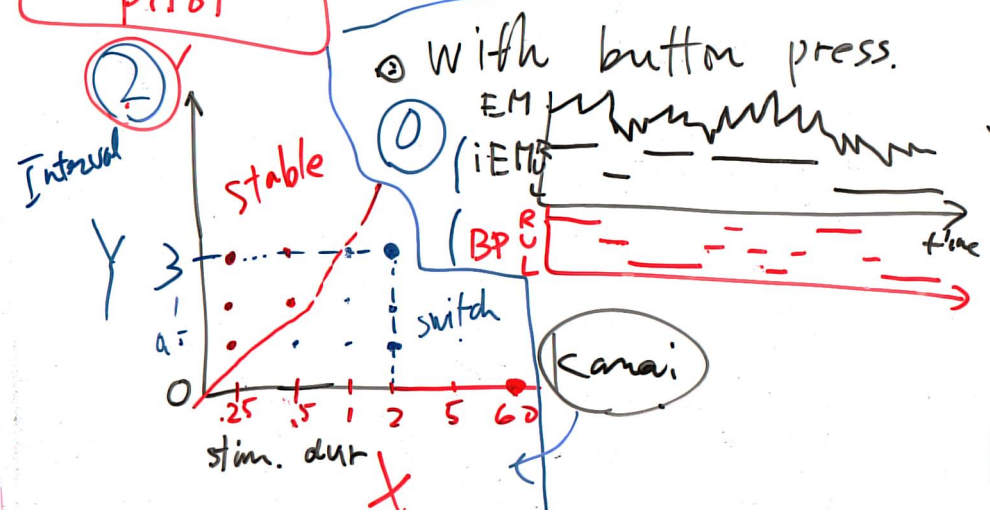 pilot
② Y
② with button press.
⓪
EM
iEM R U L
BP R U L
time
Interval
stable
Y 3
switch
0
.25 .5 1 2 5 60
stim. dur
X
Kanai